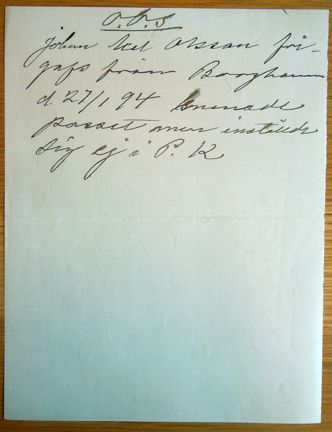 O.B.S
Johan Axel Olsson för-
gafs från Borghamn
d. 27/1 94 lemnade
passet men instälde
sig ej i P. K